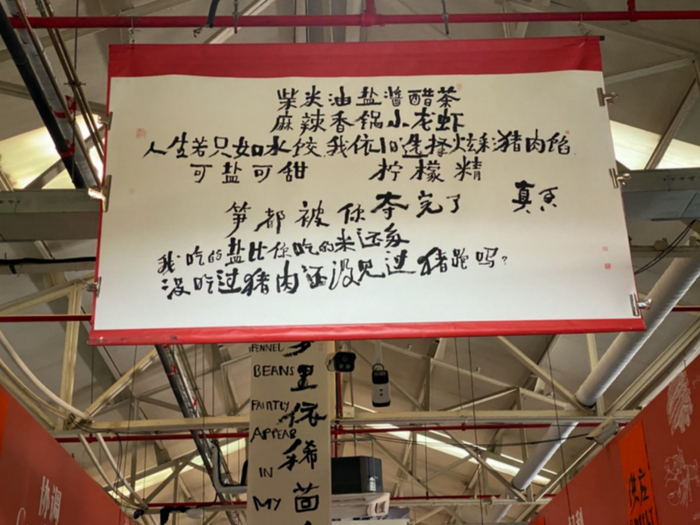 柴米油盐酱醋茶
麻辣香锅小龙虾
人生若只如水饺 我依旧选择炫彩猪肉馅
可盐可甜 柠檬精
笋都被你夺完了 真香
我吃的盐比你吃的米还多
没吃过猪肉还没见过猪跑吗？
FENNEL
BEANS
FAINTLY
APPEAR
IN
MY
里依稀茴
协调
供应